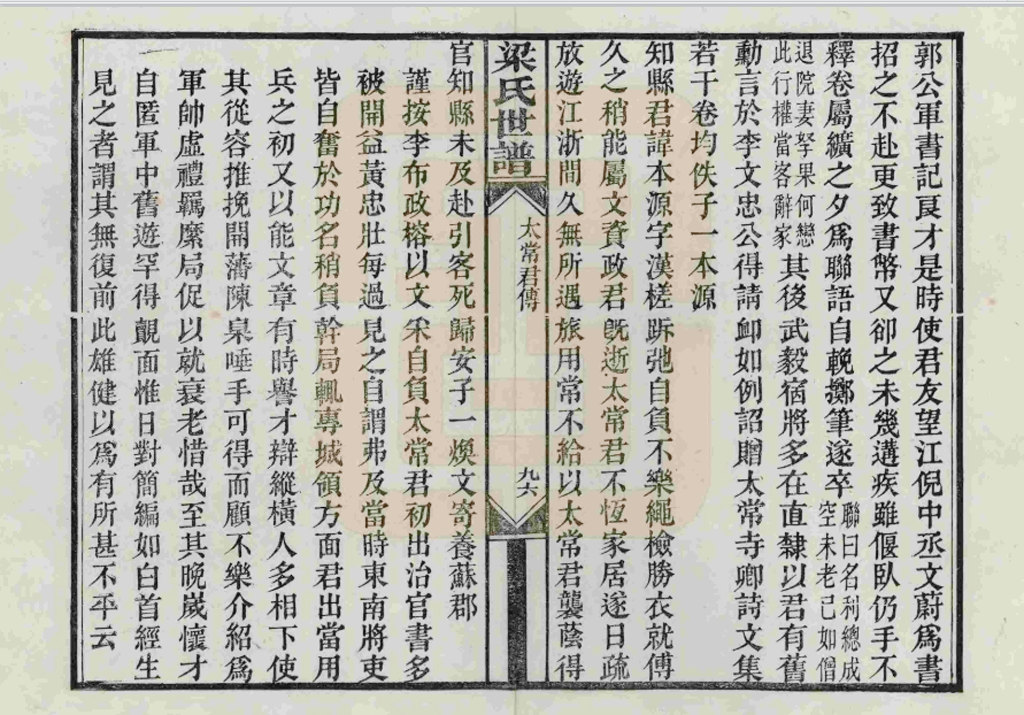 郭公軍書記良才是時使君友望江倪中丞文蔚爲書
招之不赴更致書幣又卻之未幾遘疾雖偃臥仍手不
釋卷屬纊之夕爲聯語自輓擲筆遂卒聯曰名利總成
空未老已如僧
退院妻孥果何戀
此行權當客辭家其後武毅宿將多在直隸以君有舊
勳言於李文忠公得請卹如例詔贈太常寺卿詩文集
若干卷均佚子一本源
知縣君諱本源字漢槎跅弛自負不樂繩檢勝衣就傅
久之稍能屬文資政君既逝太常君不恆家居遂日疏
放遊江浙間久無所遇旅用常不給以太常君襲蔭得
梁氏世譜
太常君傳
九六
官知縣未及赴引客死歸安子一煥文寄養蘇郡
謹按李布政榕以文采自負太常君初出治官書多
被開益黃忠壯每過見之自謂弗及當時東南將吏
皆自奮於功名稍負幹局輒專城領方面君出當用
兵之初又以能文章有時譽才辯縱橫人多相下使
其從容推挽開藩陳臬唾手可得而顧不樂介紹爲
軍帥虛禮羈縻局促以就衰老惜哉至其晚歲懷才
自匿軍中舊遊罕得覿面惟日對簡編如白首經生
見之者謂其無復前此雄健以爲有所甚不平云